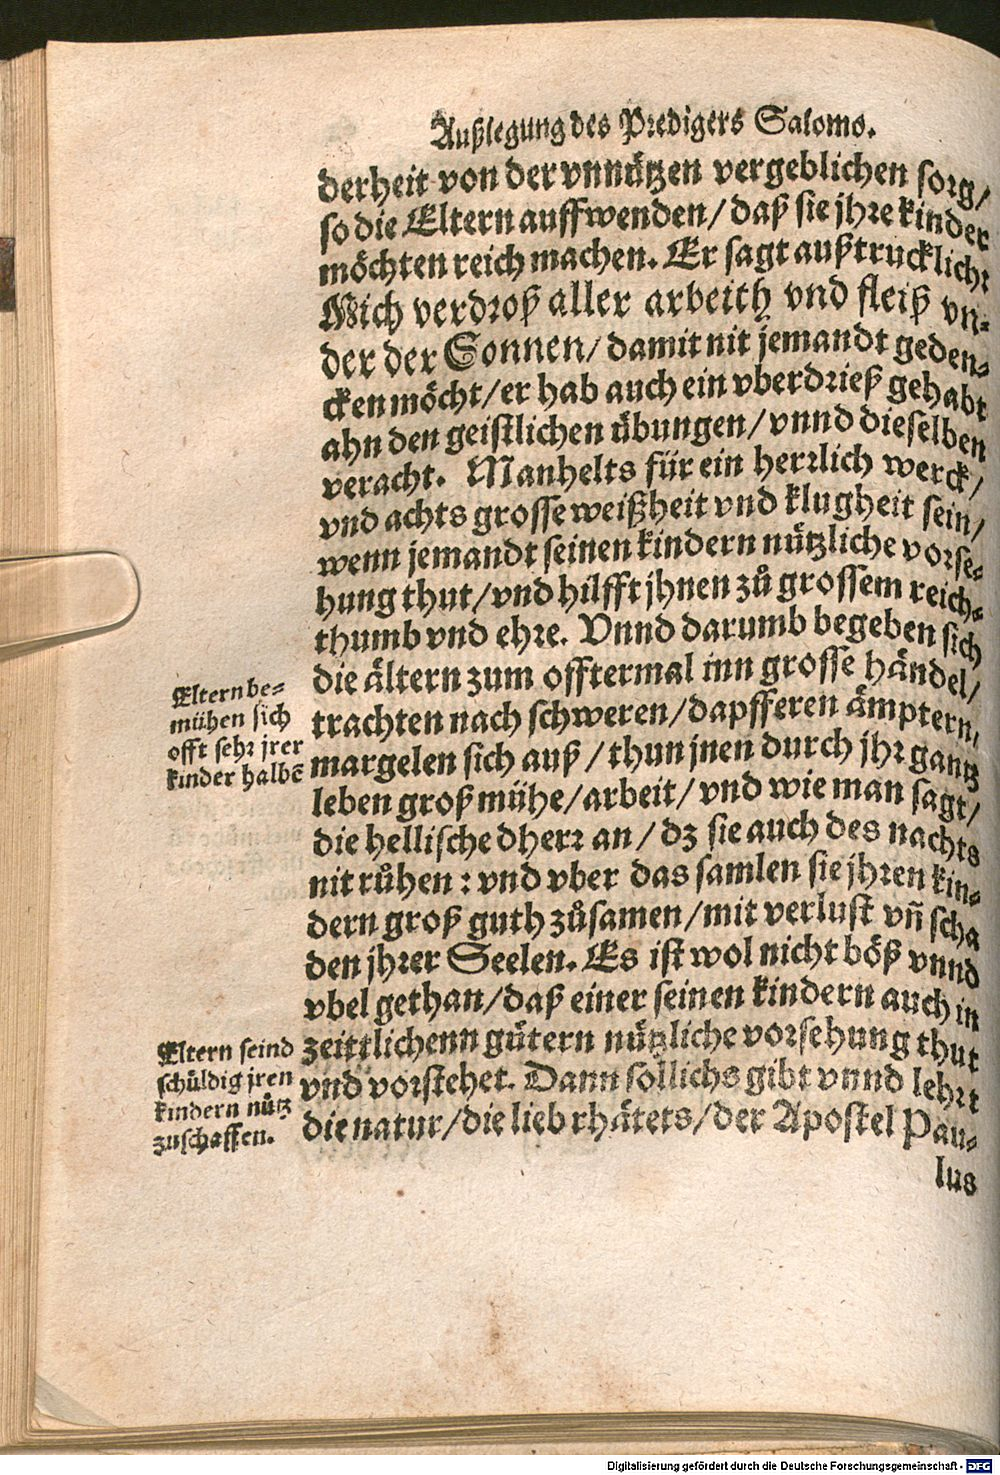 Außlegung des Predigers Salomo.
derheit von der vnnützen vergeblichen sorg/
so die Eltern auffwenden/ daß sie jhre kinder
möchten reich machen. Er sagt außtrucklicht
Mich verdroß aller arbeith vnd fleiß vn-
der der Sonnen/ damit nit jemandt geden-
cken möcht/ er hab auch ein vberdrieß gehabt
ahn den geistlichen übungen/ vnnd dieselben
veracht. Man helts für ein herrlich werck/
vnd achts grosse weißheit vnd klugheit sein/
wenn jemandt seinen kindern nützliche vorse-
hung thut/ vnd hilfft jhnen zů grossem reich-
thumb vnd ehre. Vnnd darumb begeben sich
die ältern zum offtermal inn grosse händel/
trachten nach schweren/ dapfferen ämptern,
margelen sich auß/ thun jnen durch jhr gantz
leben groß mühe/ arbeit/ vnd wie man sagt/
die hellische dherr an/ dz sie auch des nachts
nit růhen: vnd vber das samlen sie jhren kin-
dern groß guth zůsamen/ mit verlust vñ scha
den jhrer Seelen. Es ist wol nicht böß vnnd
vbel gethan/ daß einer seinen kindern auch in
zeittlichenn gütern nützliche vorsehung thut
vnd vorstehet. Dann sollichs gibt vnnd lehrt
die natur/ die lieb rhätets/ der Apostel Pau-
lus
Eltern be-
mühen sich
offt sehr jrer
kinder halbẽ
Eltern seind
schüldig jren
kindern nütz
zuschaffen.
Digitalisierung gefördert durch die Deutsche Forschungsgemeinschaft - DFG